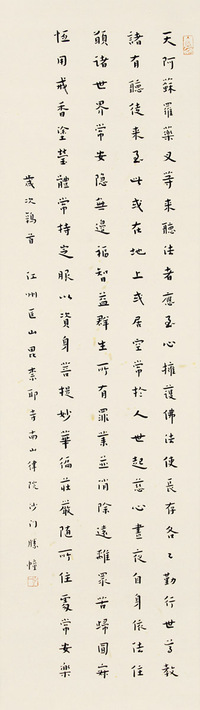 天阿蘇羅藥叉等來聽法者應至心擁護佛法使長存各々勤行世尊教
諸有聽徒來至此或在地上或居空常於人世起慈心晝夜自身依法住
願諸世界常安隱無邊福智益群生所有罪業並消除遠離眾苦歸圓寂
恆用戒香塗瑩體常持定服以資身菩提妙華徧莊嚴隨所住處常安樂
歲次鶉首 江州匡山毘柰耶寺南山律院沙门勝幢